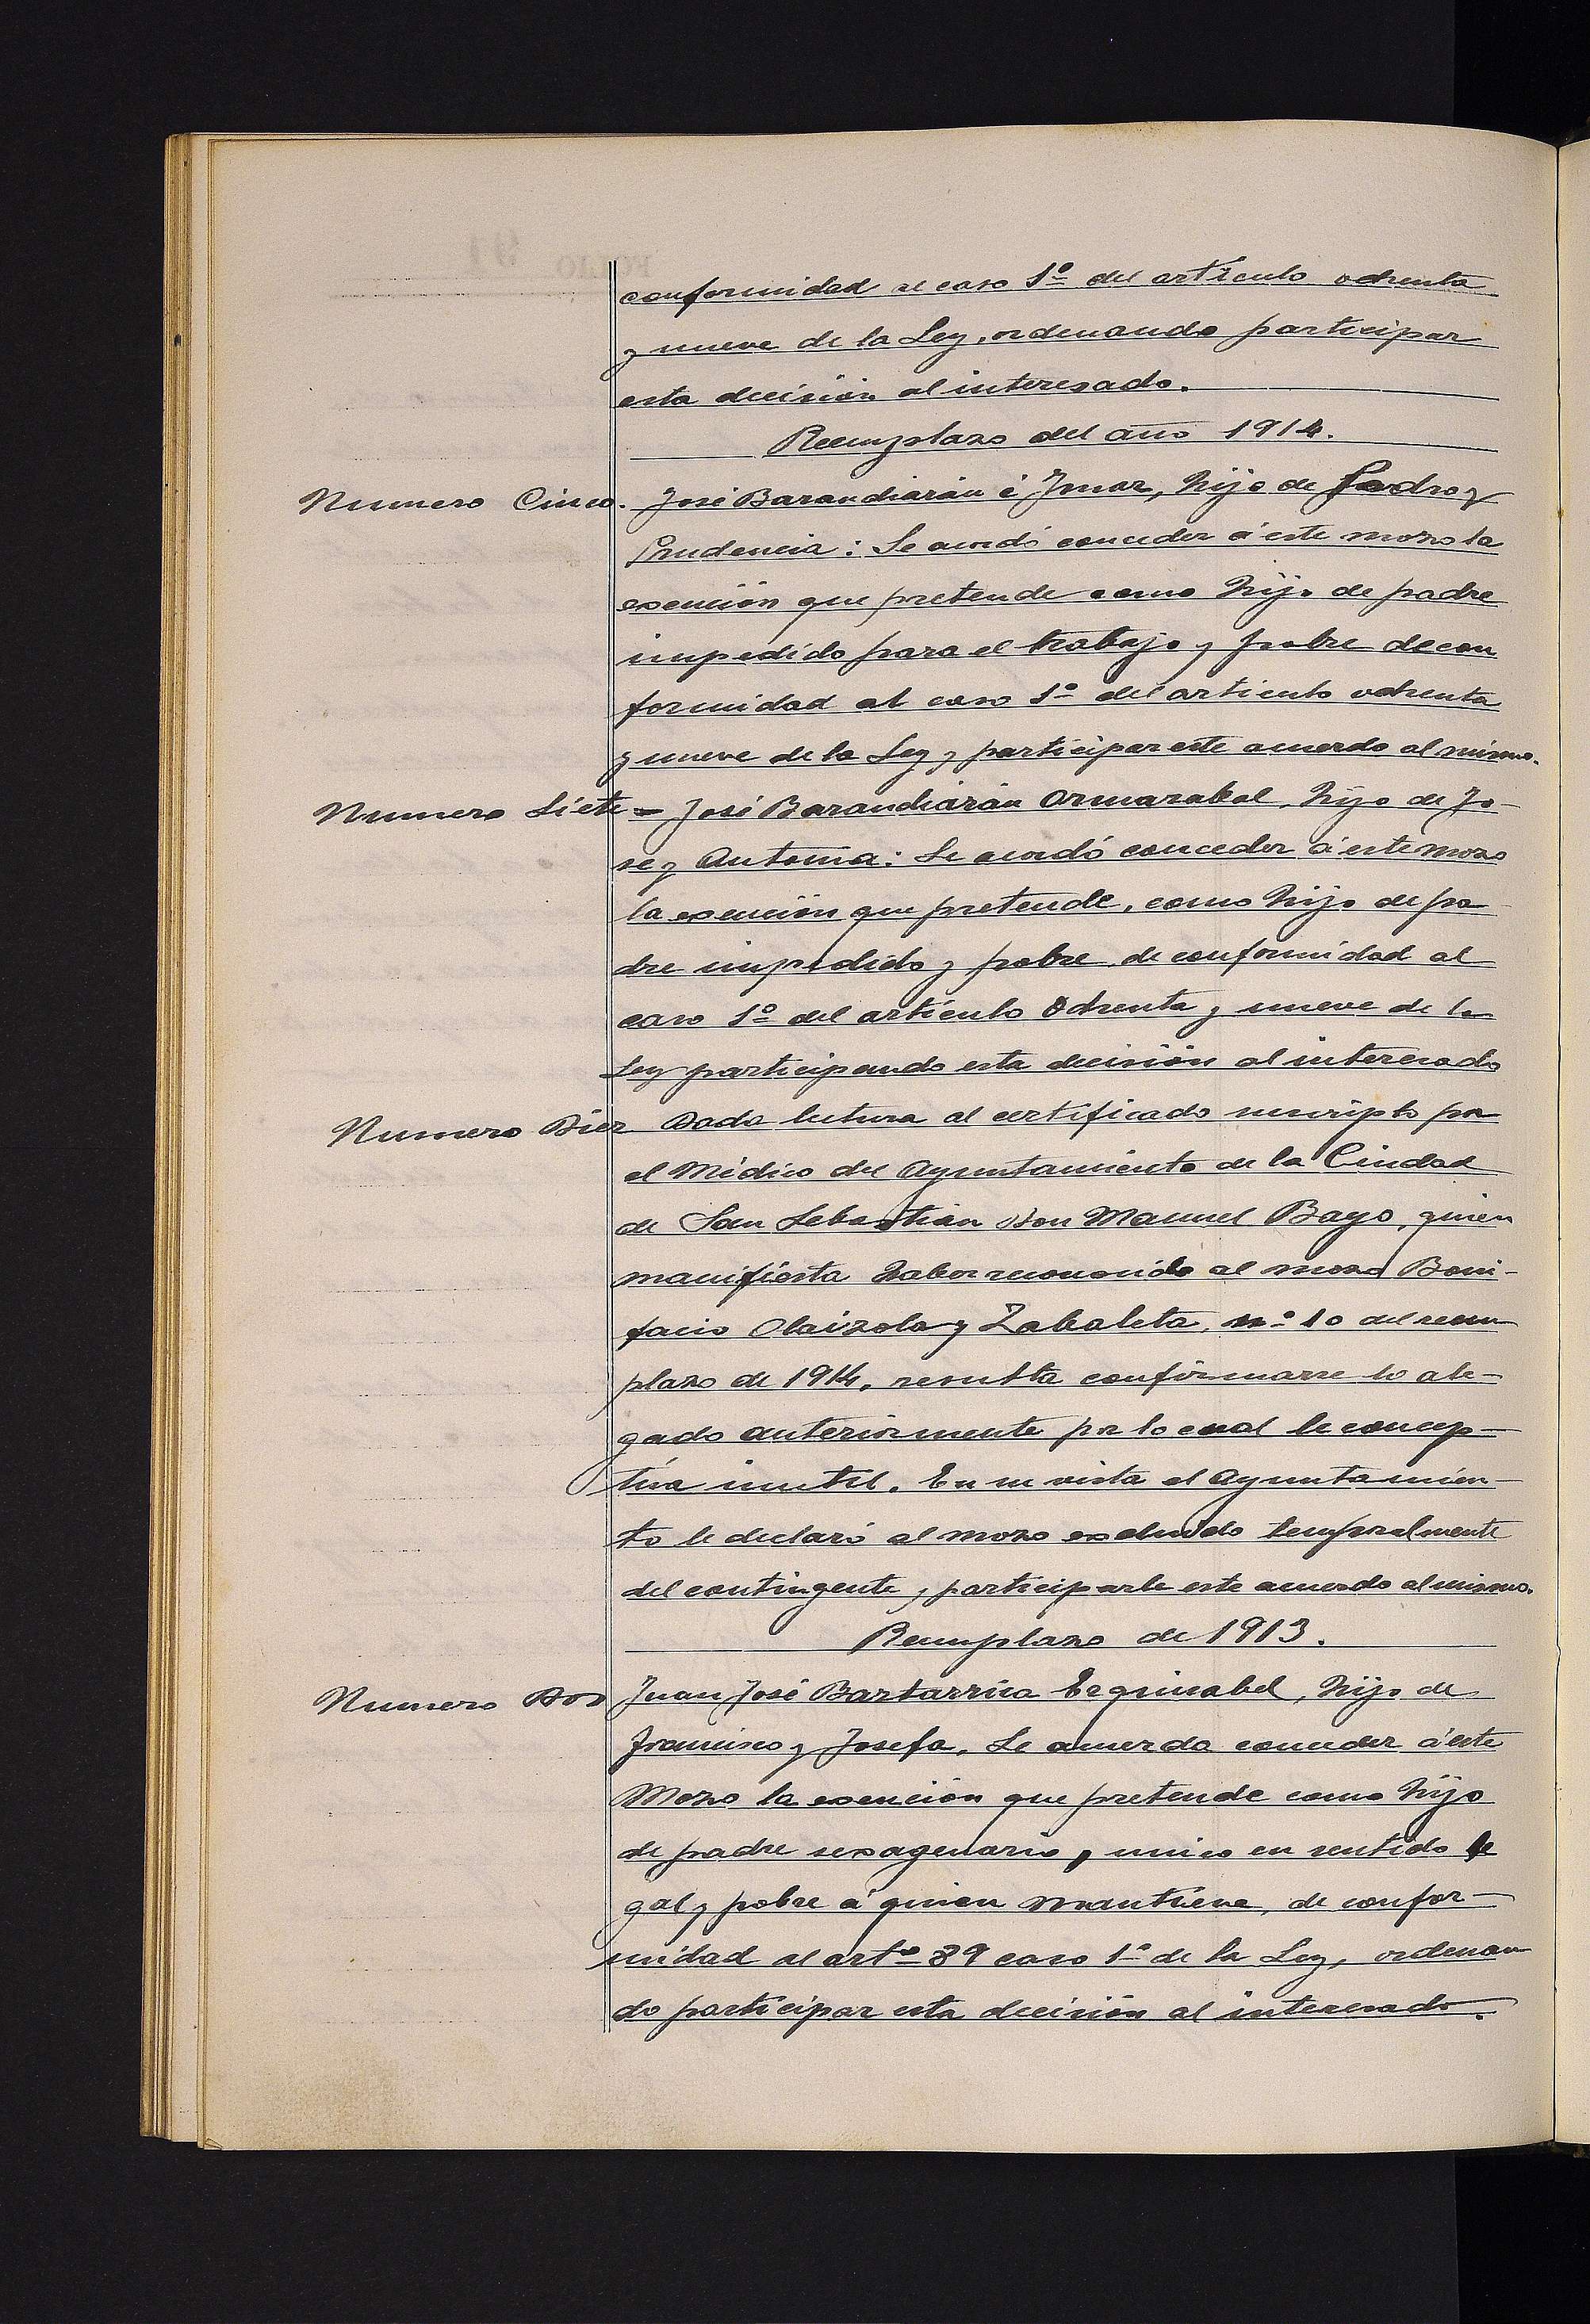 conformidad al caso 1º del artículo ochenta
y nueve de la Ley, ordenando participar
esta decisión al interesado.
Reemplazo del año 1914.
Numero Cinco. José Barandiarán é Jmaz, hijo de Pedro y
Prudencia: Se acordó conceder á este mozo la
exención que pretende como hijo de padre
impedido para el trabajo y pobre de con
formidad al caso 1º del artículo ochenta
y nueve de la Ley y participar este acuerdo al mismo.
Numero Siete = José Barandiarán Ormazabal, hijo de Jo-
se y Antonia: Se acordó conceder á este mozo
la exención que pretende, como hijo de pa
dre impedido y pobre de conformidad al
caso 1º del artículo Ochenta y nueve de la
Ley participando esta decisión al interesado
Numero Diez Dada lectura al certificado suscripto por
el Médico del Ayuntamiento de la Ciudad
de San Sebastián Don Manuel Bago, quien
manifiesta haber reconocido al mozo Boni-
facio Olaizola y Zabaleta, nº 10 del reem
plazo de 1914, resulta confirmarse lo ale-
gado anteriormente por lo cual le concep-
túa inutil. En su vista el Ayuntamien-
to le declaró al mozo excluido temporalmente
del contingente y participarle este acuerdo al mismo.
Reemplazo de 1913.
Numero Dos Juan José Baztarrica Eguizabel, hijo de
Francisco y Josefa. Se acuerda conceder á este
Mozo la exención que pretende como hijo
de padre sexagenario, unico en sentido le
gal y pobre á quien mantiene, de confor-
midad al artº 89 caso 1º de la Ley, ordenan
do participar esta decisión al interesado.